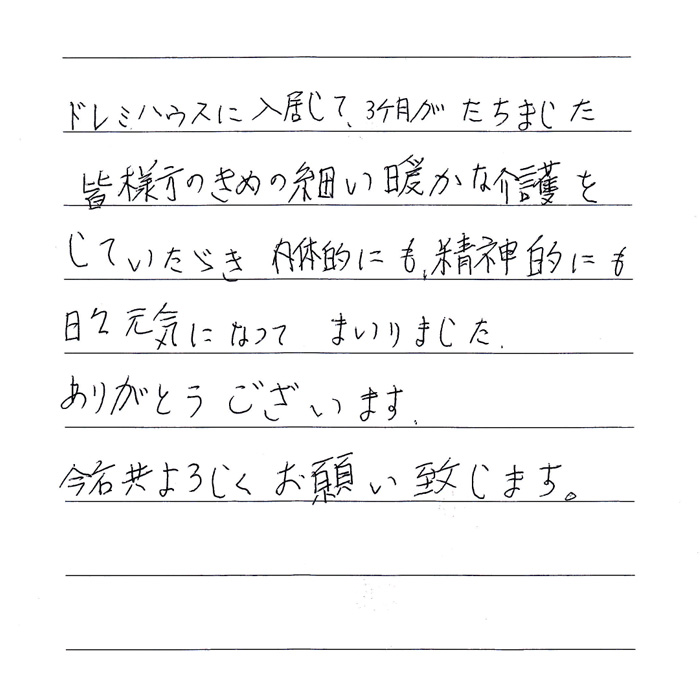 ドレミハウスに入居して、3ケ月がたちました
皆様方のきめの細い暖かな介護を
していただき 肉体的にも、精神的にも
日々元気になって まいりました.
ありがとう ございます.
今后共よろしく お願い致します。